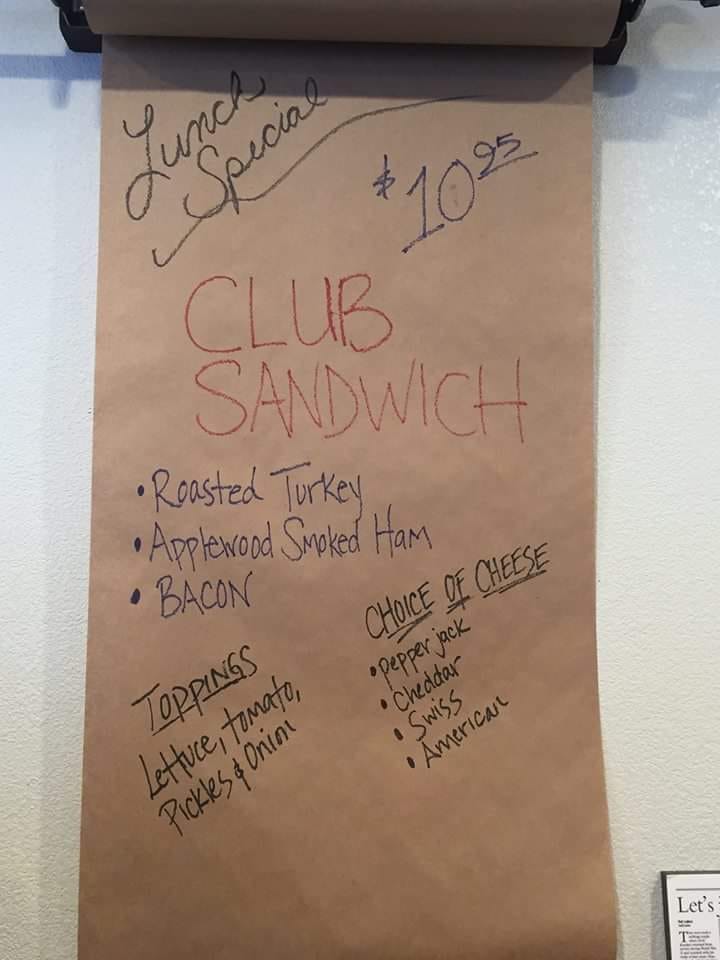 Lunch
Special
$10.95
CLUB
SANDWICH
• Roasted Turkey
• Applewood Smoked Ham
• BACON
TOPPINGS
Lettuce, tomato,
Pickles & Onion
CHOICE OF CHEESE
• Pepper jack
• Cheddar
• Swiss
• American
Let's